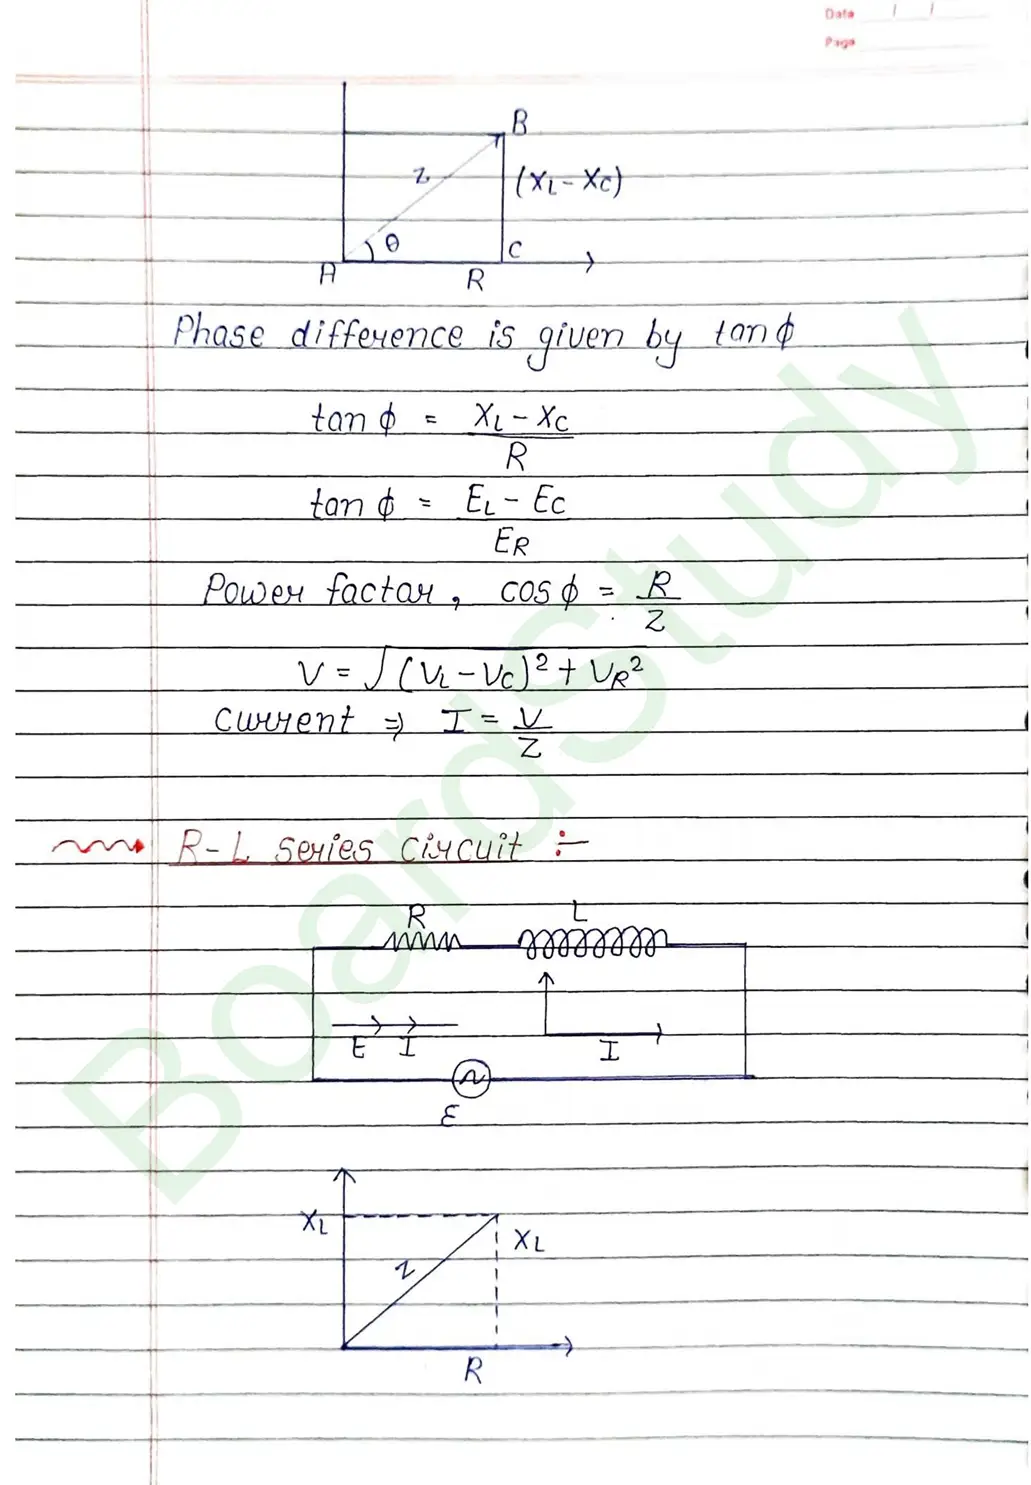 Date / /
Page
B
Z
(XL - XC)
θ
A
R
C
Phase difference is given by tan ϕ
tan ϕ = XL - XC / R
tan ϕ = EL - EC / ER
Power factor, cos ϕ = R / Z
V = √(VL - VC)² + VR²
current ⇒ I = V / Z
R-L series circuit :-
R
L
E
I
I
ε
XL
XL
Z
R
BoardStudy